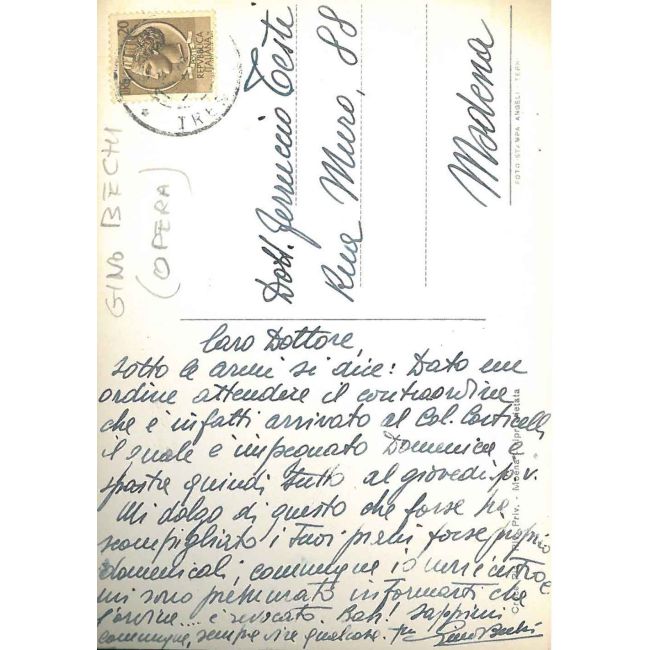 20
REPVBBLICA
ITALIANA
TRE
GINO BECHI
(OPERA)
Dott. Ferruccio Teste
Rua Muro, 88
Modena
FOTO STAMPA ANGELI TERNI
Caro Dottore,
sotto le armi si dice: Dato un
ordine attendere il contraordine
che è infatti arrivato al Col. Corticelli
il quale è impegnato Domenica e
sposta quindi tutto al giovedì p.v.
Mi dolgo di questo che forse ha
scompigliato i Tuoi piani forse proprio
domenicali, comunque io
mi sono premurato informarti che
l'ordine... è revocato. Bah! Sappimi
comunque, sempre dire qualcosa. Tuo Gino Bechi